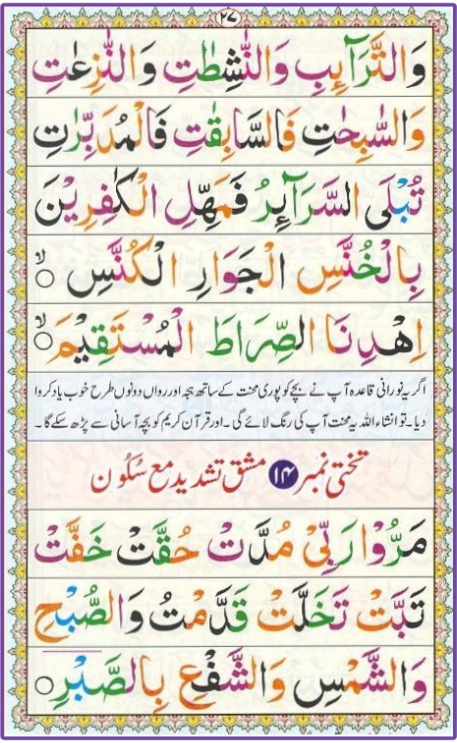 ۲۷
وَالتَّرَآئِبِ وَالنّٰشِطٰتِ وَالنّٰزِعٰتِ
وَالسّٰبِحٰتِ فَالسَّابِقٰتِ فَالْمُدَبِّرٰتِ
تُبْلَى السَّرَآئِرُ فَمَهِّلِ الْكٰفِرِيْنَ
بِالْخُنَّسِ الْجَوَارِ الْكُنَّسِ ۙ
اِهْدِنَا الصِّرَاطَ الْمُسْتَقِيْمَ ۙ
اگر یہ نورانی قاعدہ آپ نے بچے کو پوری محنت کے ساتھ ہجہ اور رواں دونوں طرح خوب یاد کروا
دیا۔ تو انشاء اللہ یہ محنت آپ کی رنگ لائے گی۔ اور قرآن کریم کو بچہ آسانی سے پڑھ سکے گا۔
تختی نمبر ۱۴ مشق تشدید مع سُکُون
مَرُّوْا رَبِّیْ مُدَّتْ حُقَّتْ خَفَّتْ
تَبَّتْ تَخَلَّتْ قَدَّمْتُ وَالصُّبْحِ
وَالشَّمْسِ وَالشَّفْعِ بِالصَّبْرِ ○